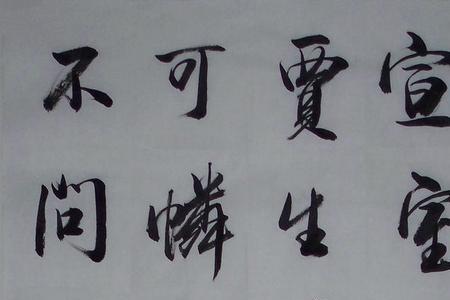 宣室
賈生
可憐
不問